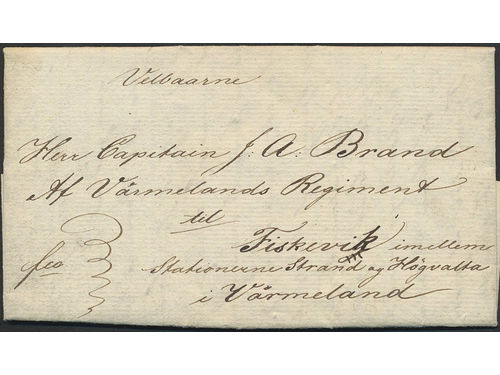 Velbaarne
Herr Capitain J. A. Brand
Af Värmelands Regiment
til
Fiskevik imellem
fco Stationerne Strand og Högvalta
i Värmeland